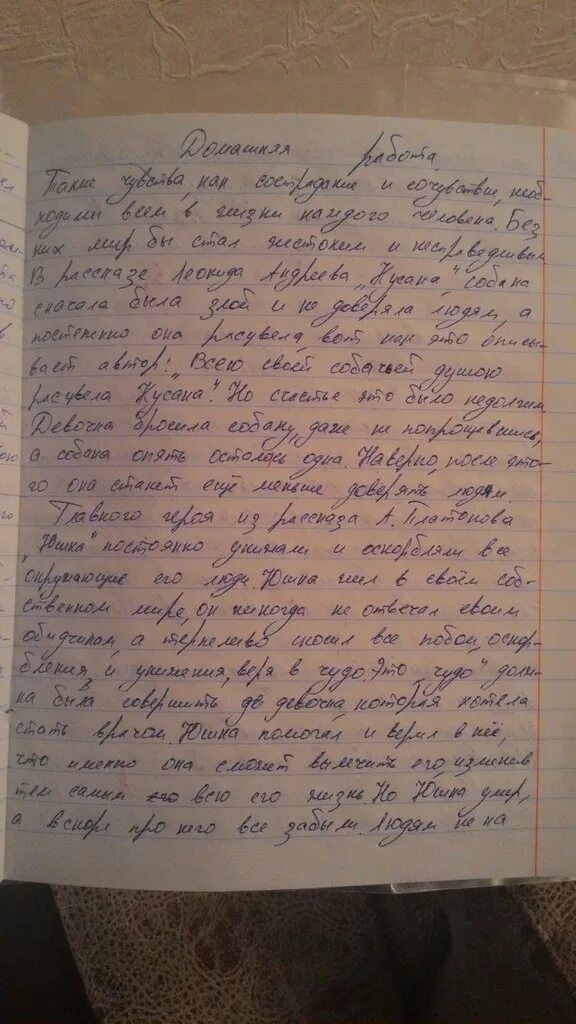 Домашняя работа
Такие чувства, как сострадание и сочувствие, необ-
ходимы всем в жизни каждого человека. Без
них мир бы стал жестоким и несправедливым.
В рассказе Леонида Андреева „Кусака", собака
сначала была злой и не доверяла людям, а
постепенно она расцвела, вот как это описы-
вает автор: „Всею своей собачьей душою
расцвела Кусака". Но счастье это было недолгим.
Девочка бросила собаку, даже не попрощавшись,
а собака опять осталась одна. Наверно, после это-
го она станет ещё меньше доверять людям.
Главного героя из рассказа А. Платонова
„Юшка" постоянно унижали и оскорбляли все
окружающие его люди. Юшка жил в своём соб-
ственном мире, он никогда не отвечал своим
обидчикам, а терпеливо сносил все побои, оскор-
бления, и унижения, веря в чудо. Это „чудо" долж-
на была совершить девочка, которая хотела
стать врачом. Юшка помогал и верил в неё,
что именно она сможет вылечить его, изменив
тем самым всю его жизнь. Но Юшка умер,
а вскоре про него все забыли. Людям не на